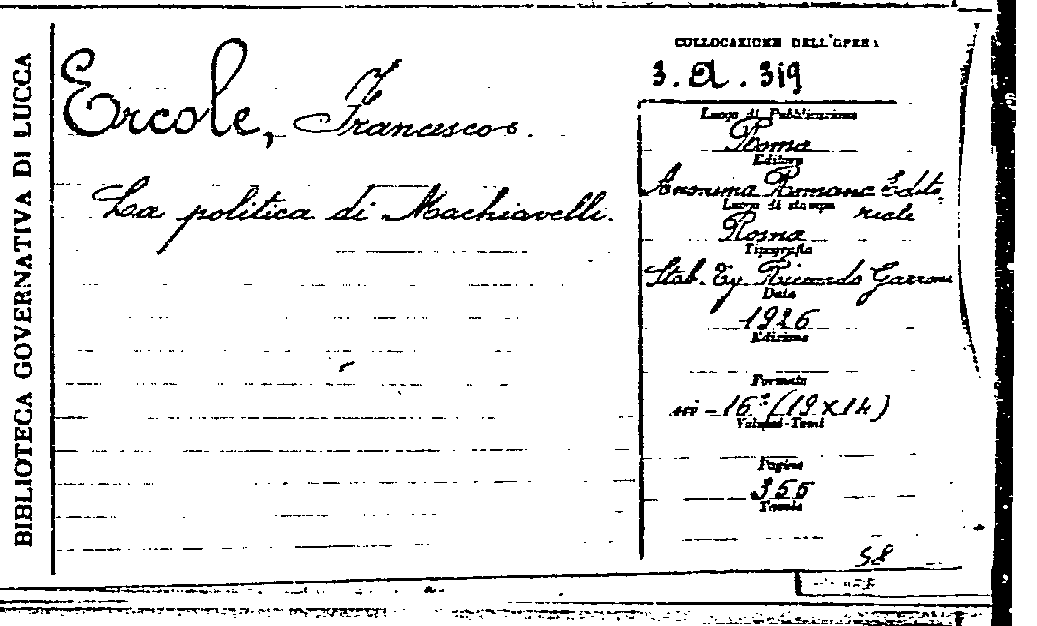 BIBLIOTECA GOVERNATIVA DI LUCCA
Ercole, Francesco.
La politica di Machiavelli.
COLLOCAZIONE DELL'OPERA
3. A. 319
Luogo di Pubblicazione
Roma
Editore
Anonima Romana Edito
riale
Luogo di stampa
Roma
Tipografia
Stab. Tip. Riccardo Garroni
Data
1926
Edizione
Formato
in-16° (19x14)
Volumi-Tomi
Pagine
355
Tavole
58